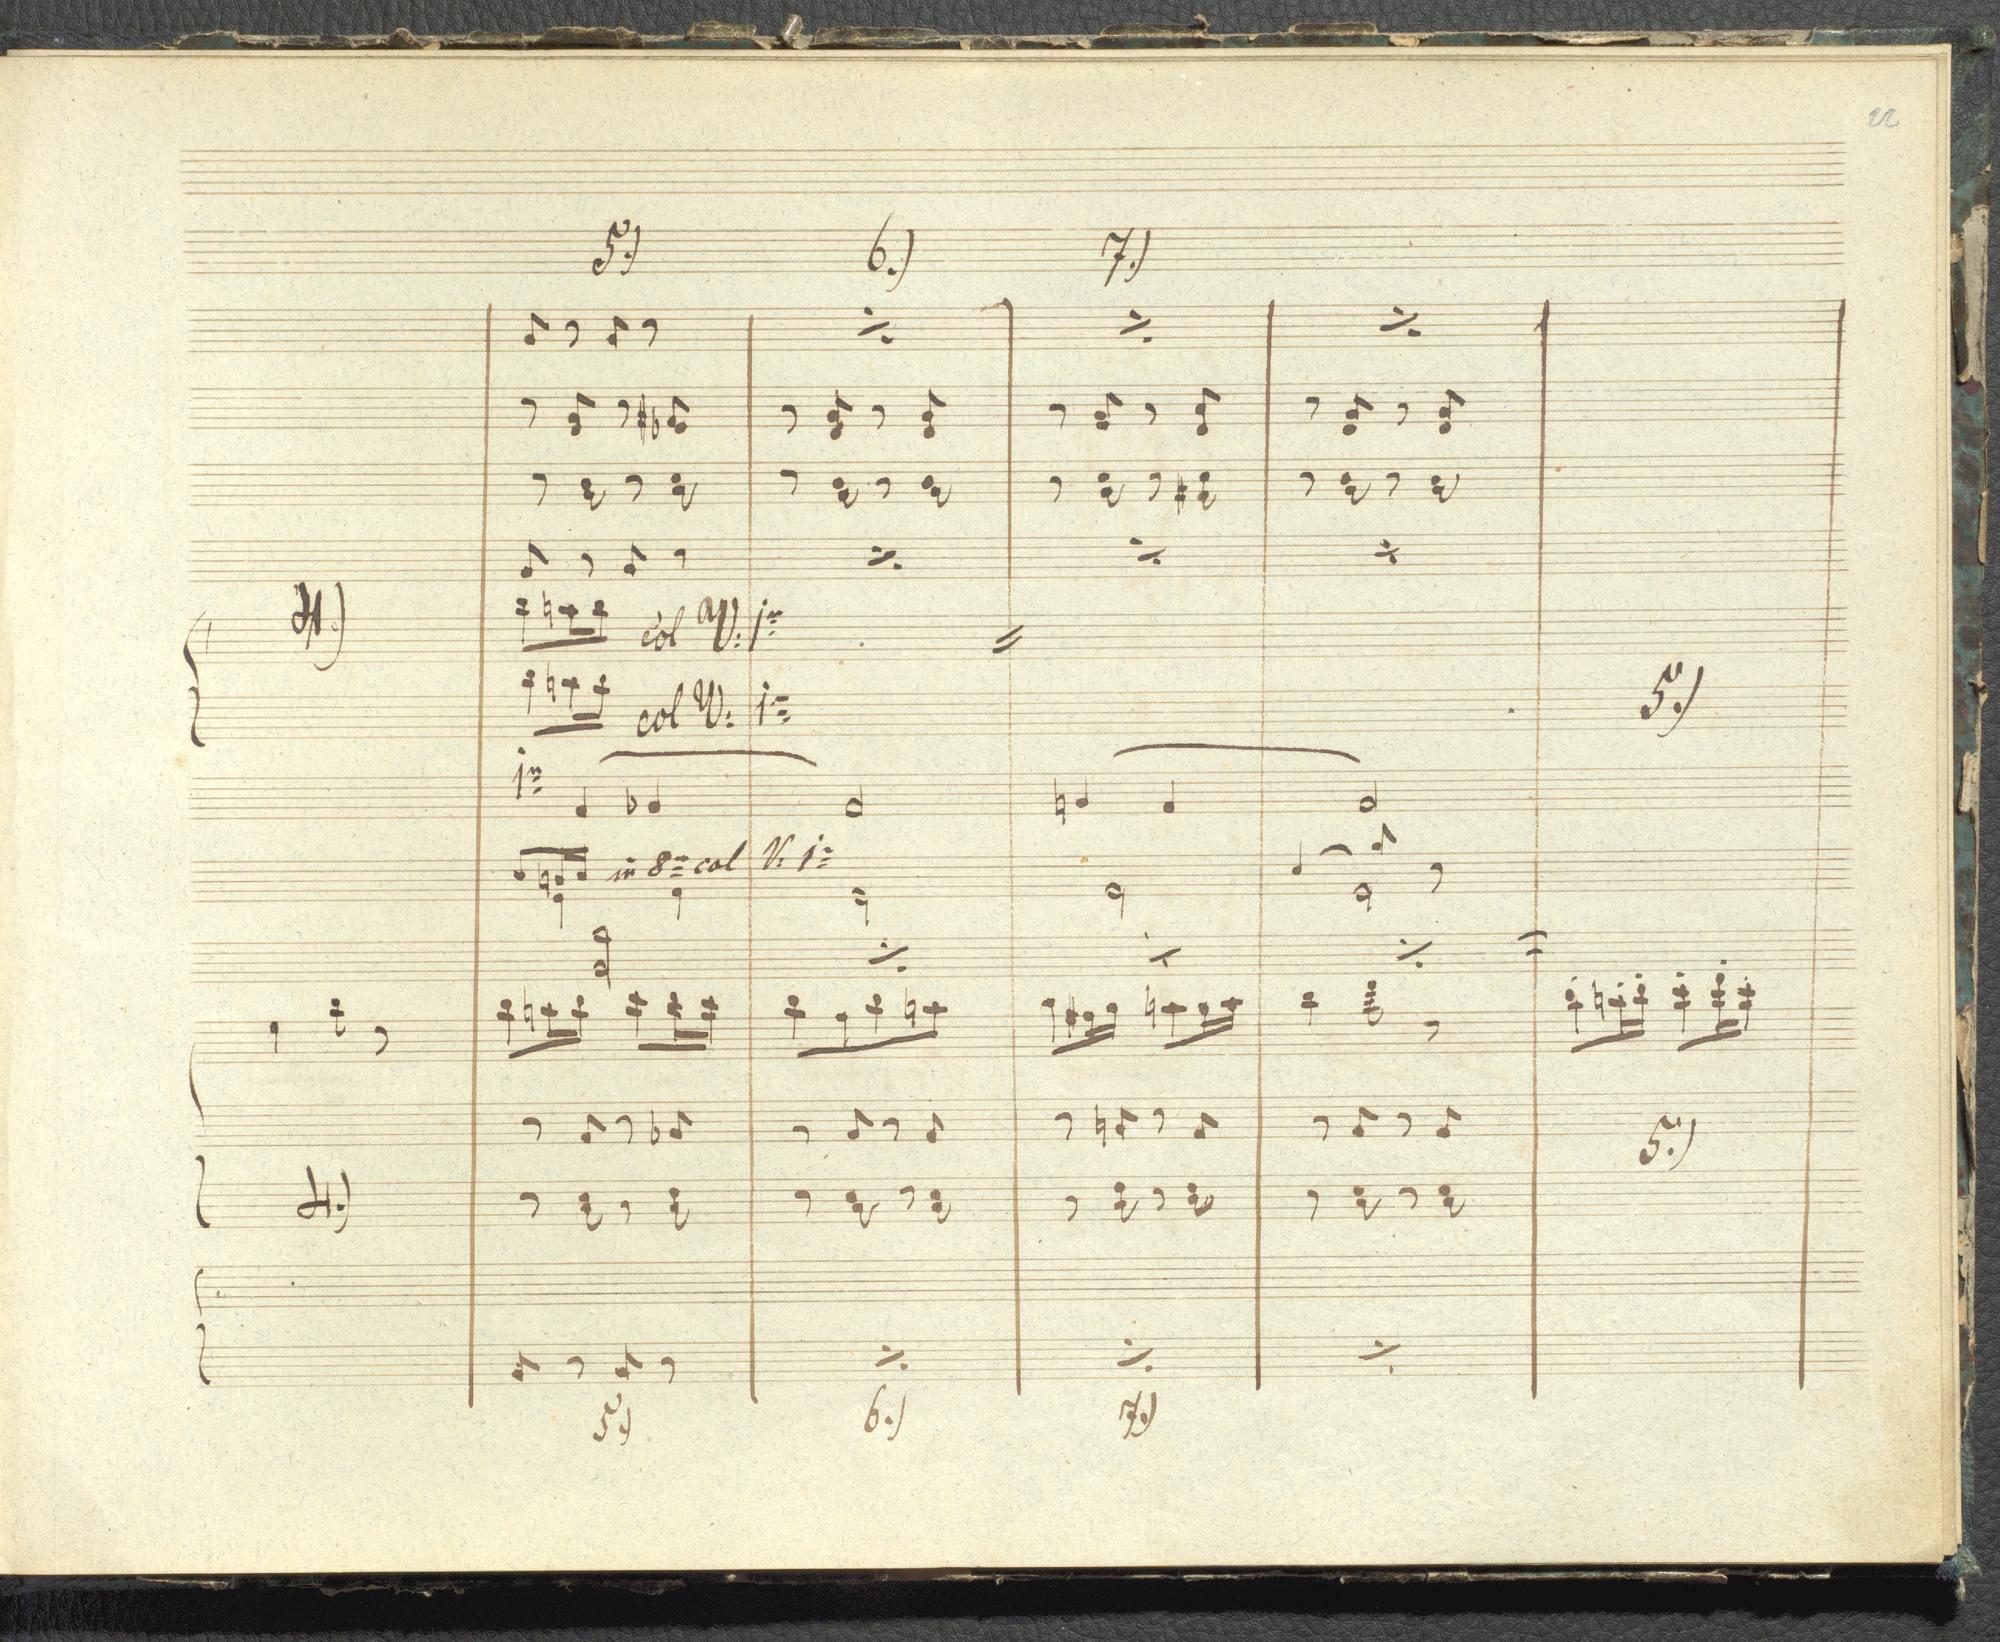 22
5.) 6.) 7.)
4.)
col V: 1mo
col V: 1mo
5.)
1mo
in 8va col V: 1mo
5.)
4.)
5.) 6.) 7.)